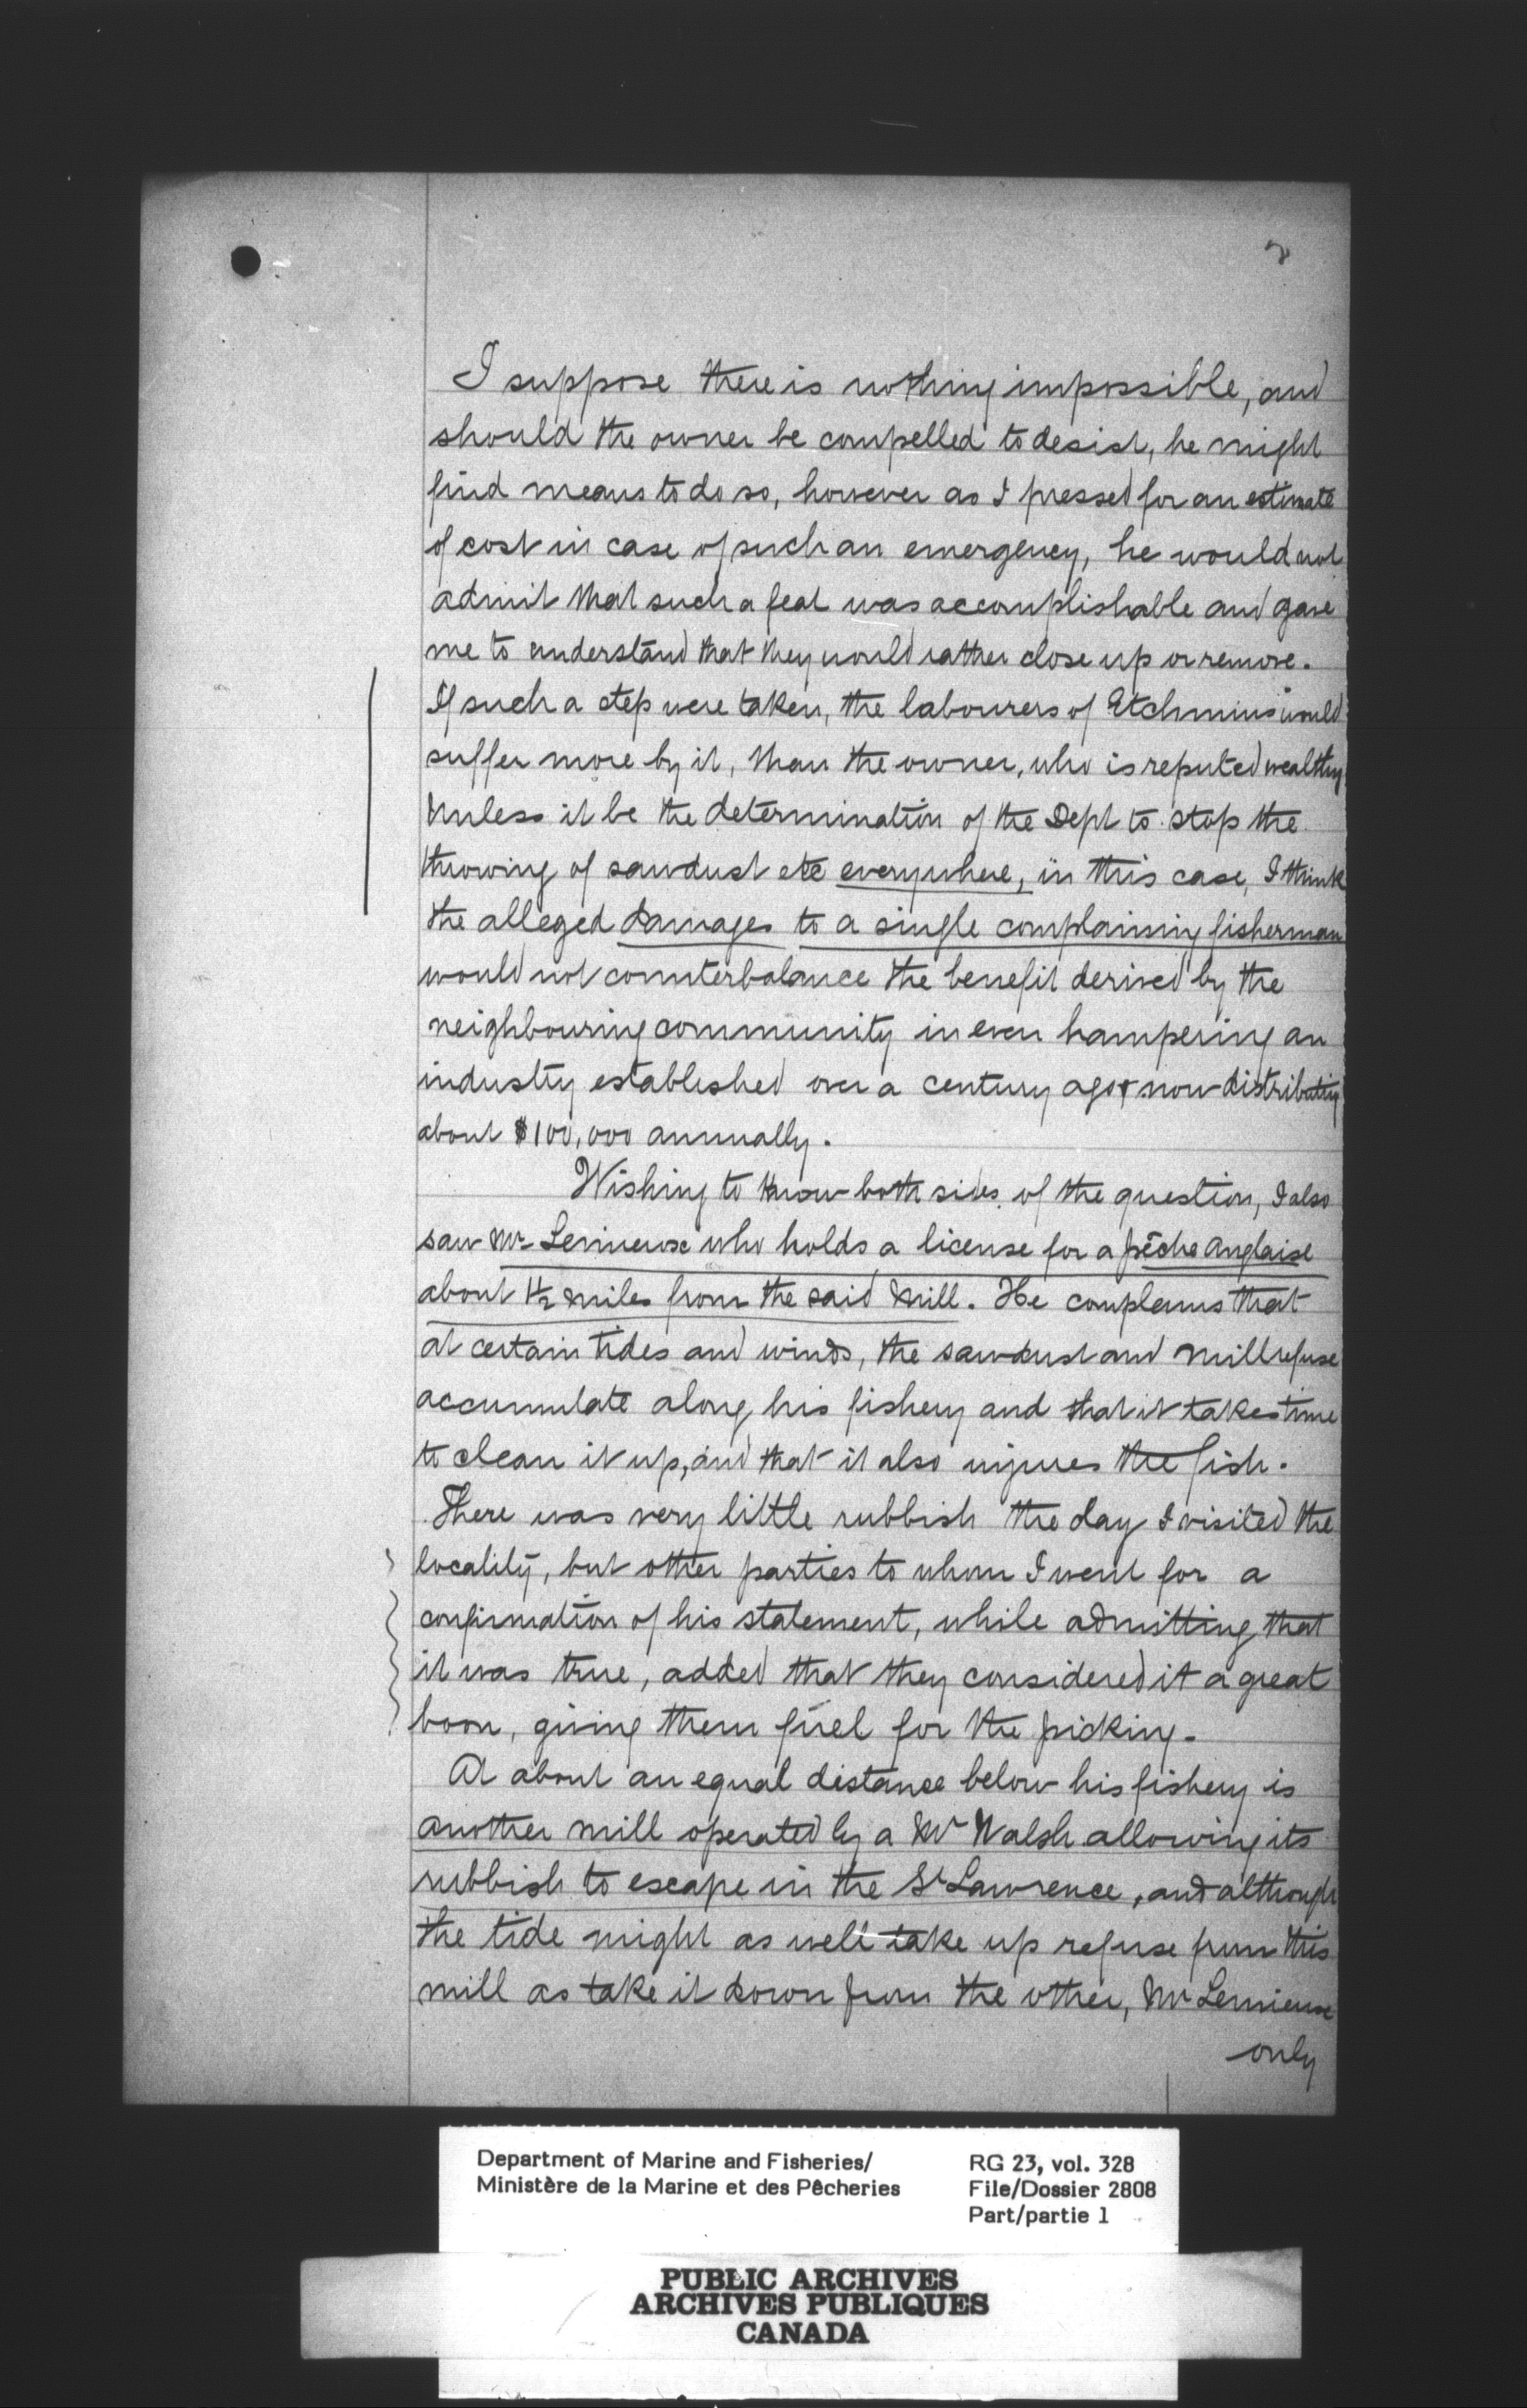 I suppose there is nothing impossible, and
should the owner be compelled to desist, he might
find means to do so, however as I pressed for an estimate
of cost in case of such an emergency, he would not
admit that such a feat was accomplishable and gave
me to understand that they would rather close up or remove.
If such a step were taken, the labourers of Etchmins would
suffer more by it, than the owner, who is reputed wealthy
Unless it be the determination of the Dept to stop the
throwing of sawdust etc everywhere, in this case, I think
the alleged damages to a single complaining fisherman
would not counterbalance the benefit derived by the
neighbouring community in even hampering an
industry established over a century ago & now distributing
about $100,000 annually.
Wishing to know both sides of the question, I also
saw Mr Lemieux who holds a license for a pêche Anglaise
about 1 1/2 miles from the said Mill. He complains that
at certain tides and winds, the sawdust and mill refuse
accumulate along his fishery and that it takes time
to clean it up, and that it also injures the fish.
There was very little rubbish the day I visited the
locality, but other parties to whom I went for a
confirmation of his statement, while admitting that
it was true, added that they considered it a great
boon, giving them fuel for the picking.
At about an equal distance below his fishery is
another mill operated by a Mr Walsh allowing its
rubbish to escape in the St Lawrence, and although
the tide might as well take up refuse from this
mill as take it down from the other, Mr Lemieux
only
Department of Marine and Fisheries/
Ministère de la Marine et des Pêcheries
RG 23, vol. 328
File/Dossier 2808
Part/partie 1
PUBLIC ARCHIVES
ARCHIVES PUBLIQUES
CANADA